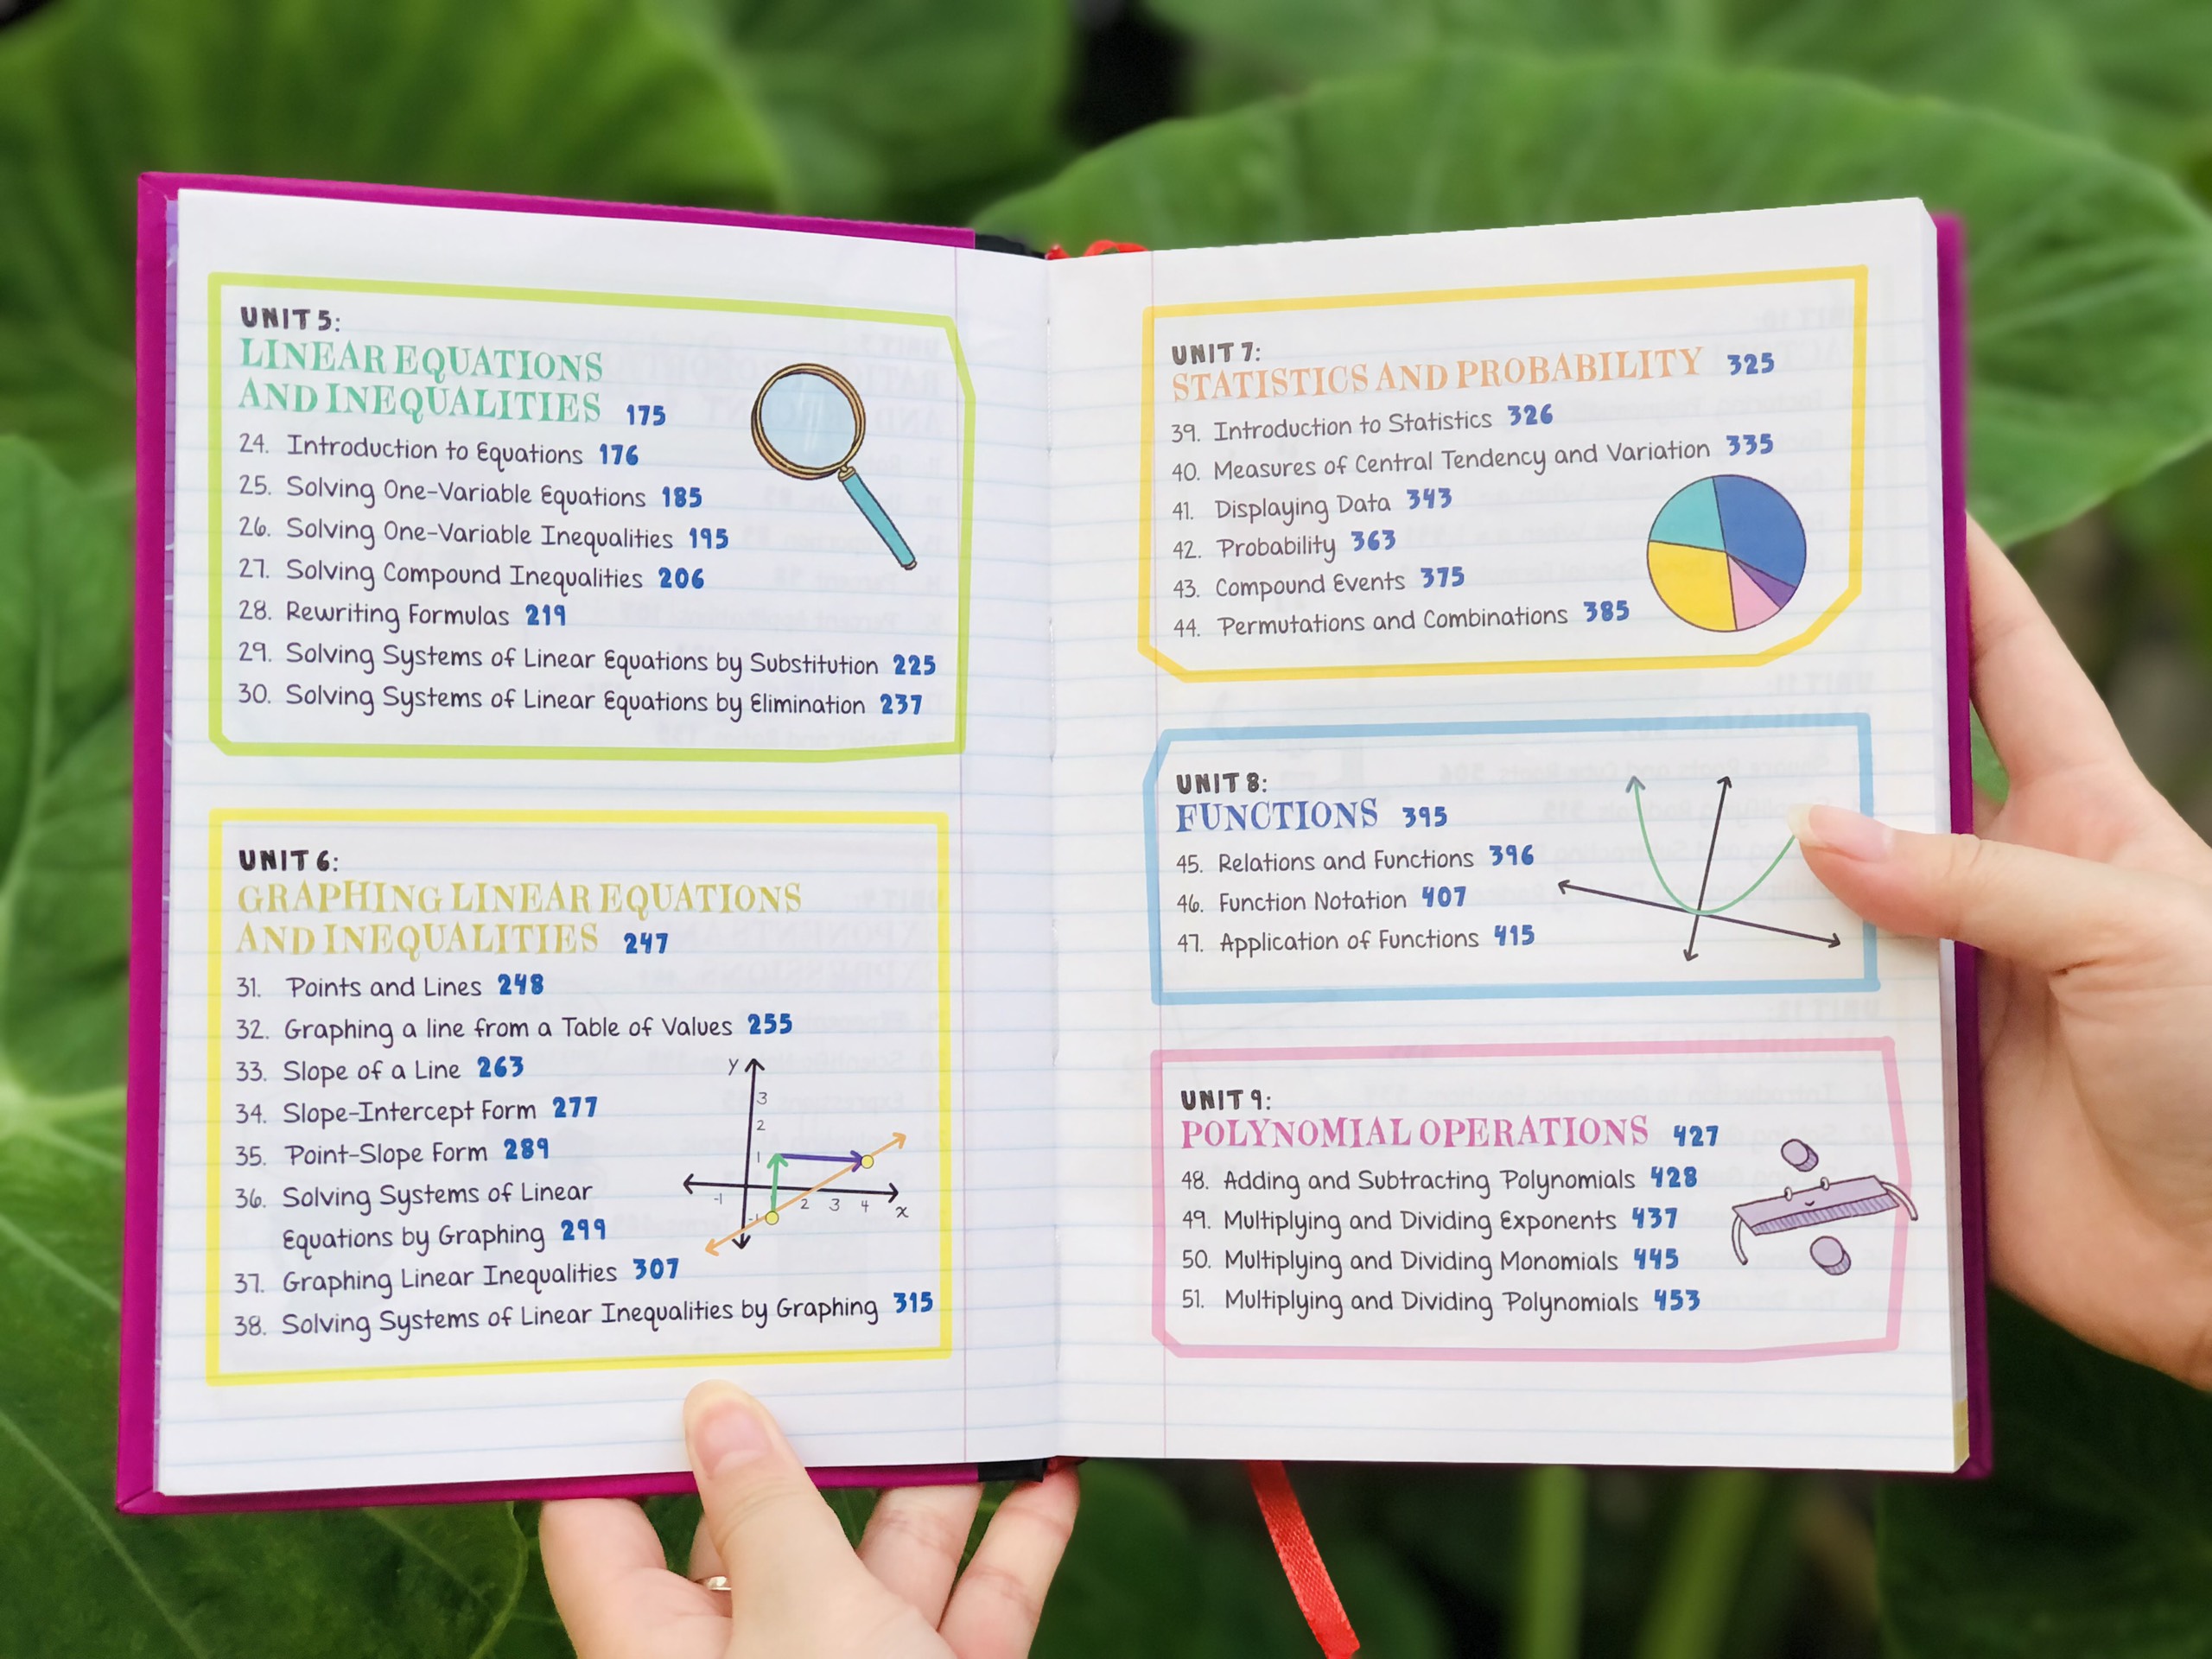 UNIT 5:
LINEAR EQUATIONS
AND INEQUALITIES 175
24. Introduction to Equations 176
25. Solving One-Variable Equations 185
26. Solving One-Variable Inequalities 195
27. Solving Compound Inequalities 206
28. Rewriting Formulas 219
29. Solving Systems of Linear Equations by Substitution 225
30. Solving Systems of Linear Equations by Elimination 237
UNIT 6:
GRAPHING LINEAR EQUATIONS
AND INEQUALITIES 247
31. Points and Lines 248
32. Graphing a line from a Table of Values 255
33. Slope of a Line 263
34. Slope-Intercept Form 277
35. Point-Slope Form 289
36. Solving Systems of Linear
Equations by Graphing 299
37. Graphing Linear Inequalities 307
38. Solving Systems of Linear Inequalities by Graphing 315
y
3
2
1
-1 2 3 4 x
-1
UNIT 7:
STATISTICS AND PROBABILITY 325
39. Introduction to Statistics 326
40. Measures of Central Tendency and Variation 335
41. Displaying Data 343
42. Probability 363
43. Compound Events 375
44. Permutations and Combinations 385
UNIT 8:
FUNCTIONS 395
45. Relations and Functions 396
46. Function Notation 407
47. Application of Functions 415
UNIT 9:
POLYNOMIAL OPERATIONS 427
48. Adding and Subtracting Polynomials 428
49. Multiplying and Dividing Exponents 437
50. Multiplying and Dividing Monomials 445
51. Multiplying and Dividing Polynomials 453